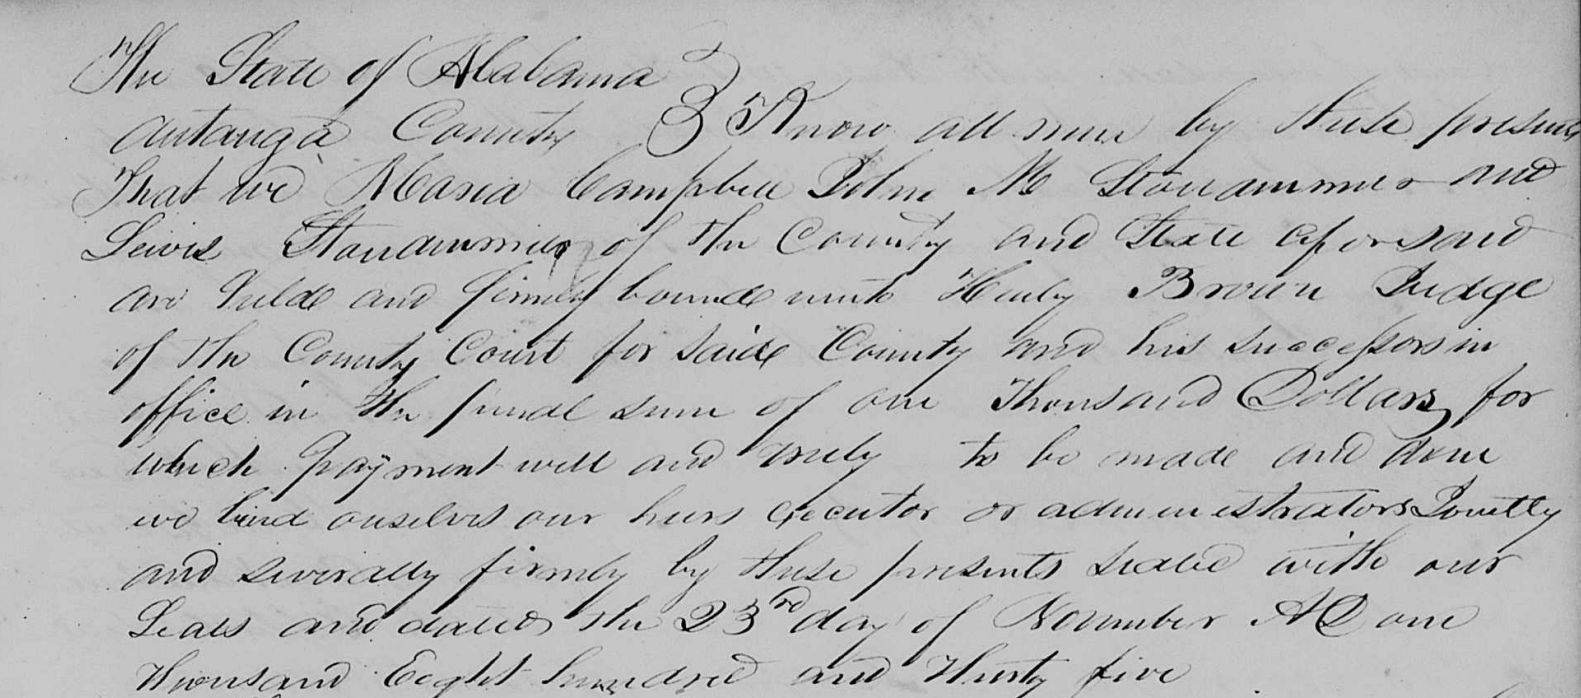 The State of Alabama
Autauga County Know all men by these presents
That we Maria Campbell John M Stoudimmier and
Lewis Stoudimmier of the County and State aforesaid
are held and firmly bound unto Henly Brown Judge
of the County Court for said County and his successors in
office in the penal sum of one Thousand Dollars for
which payment well and truly to be made and done
we bind ouselves our heirs executor or administrators Jointly
and severally firmly by these presents sealed with our
Seals and dated the 23rd day of November AD one
Thousand Eeght hundred and Thirty five